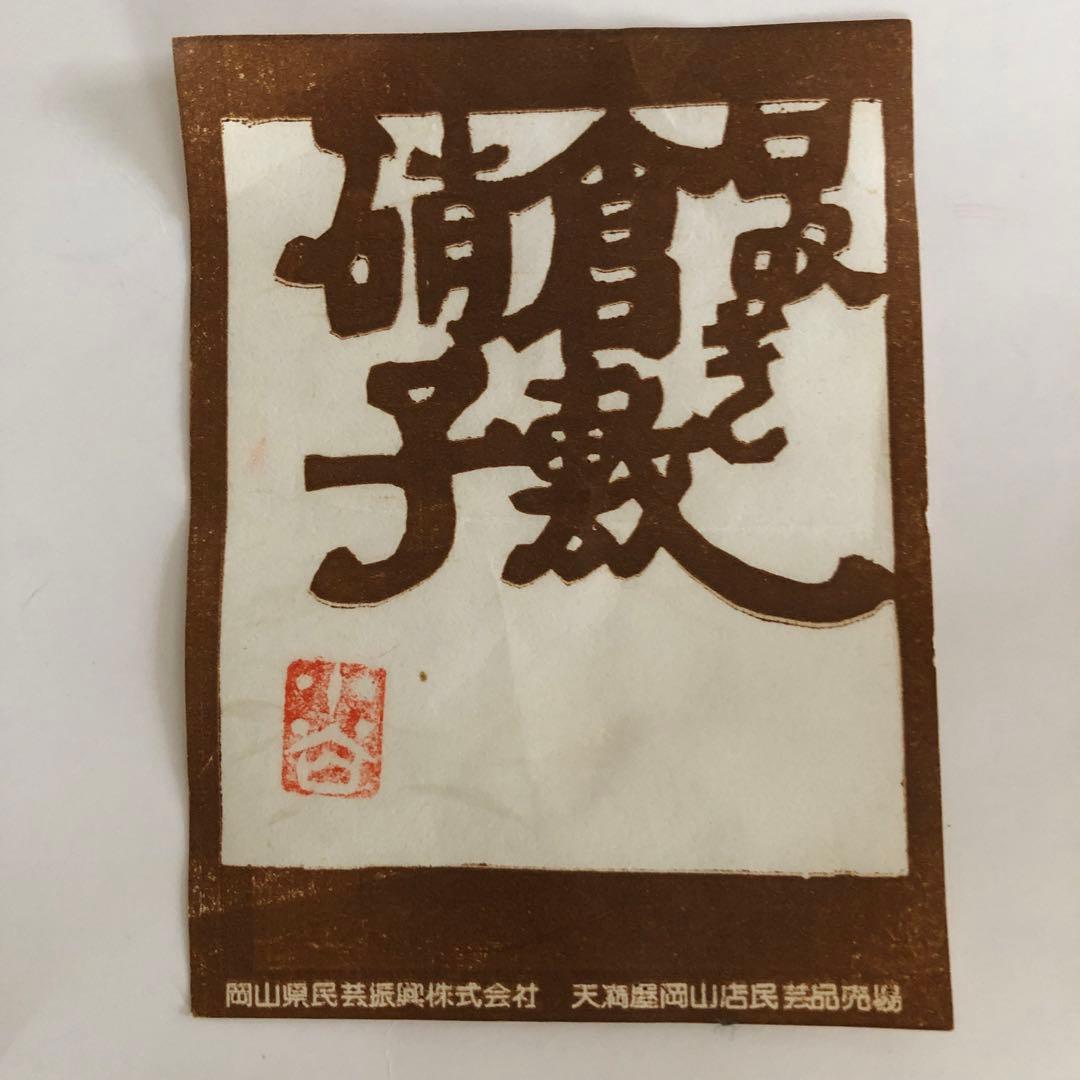 倉敷
硝子
小谷
岡山県民芸振興株式会社　天満屋岡山店民芸品売場